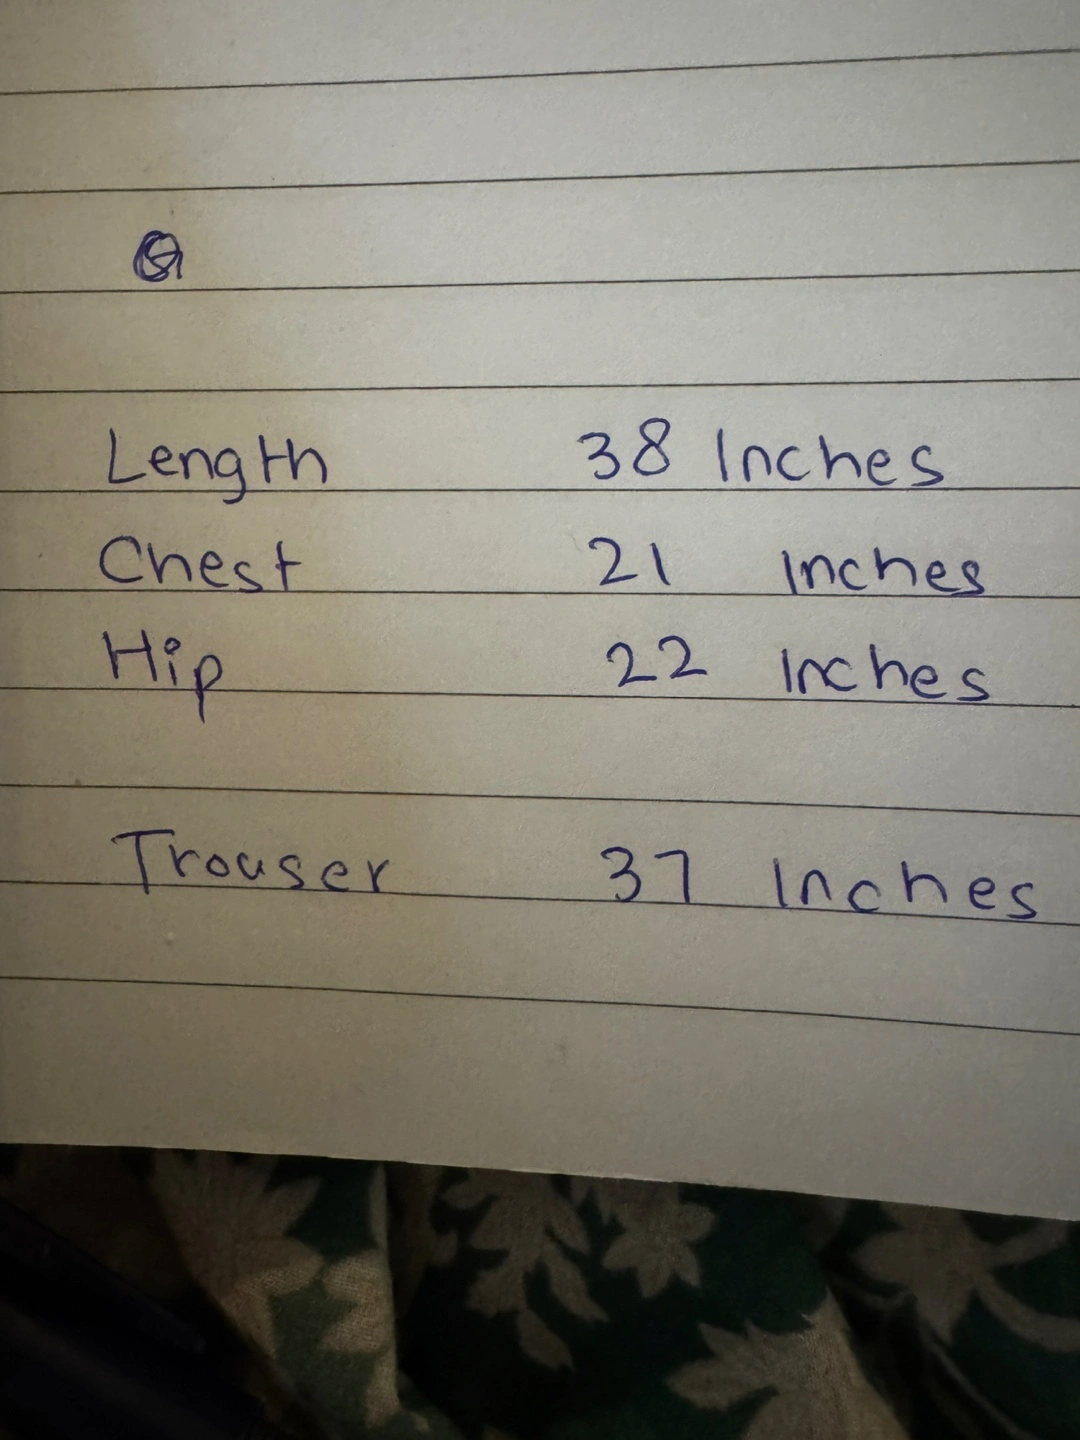 Length 38 Inches
Chest 21 Inches
Hip 22 Inches
Trouser 37 Inches